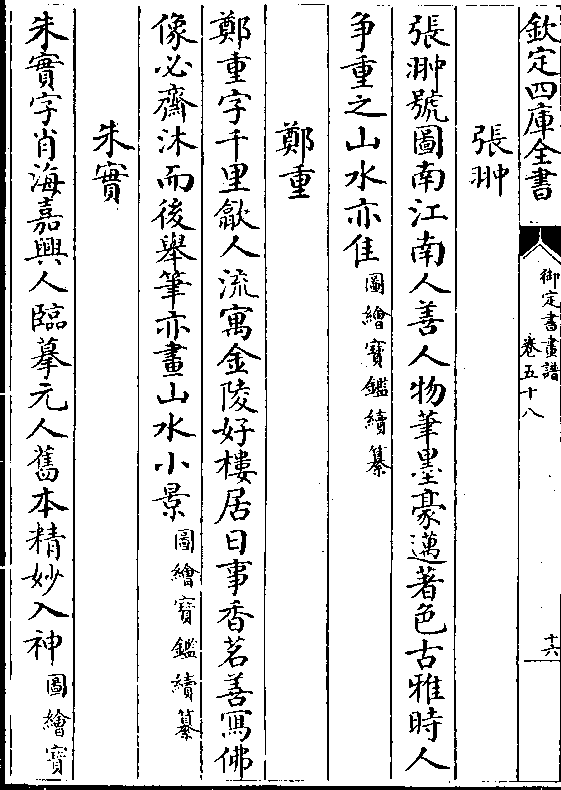 欽定四庫全書
御定書畫譜
卷五十八
十六
張翀
張翀號圖南江南人善人物筆墨豪邁著色古雅時人
爭重之山水亦佳圖繪寶鑑續纂
鄭重
鄭重字千里歙人流寓金陵好樓居日事香茗善寫佛
像必齋沐而後舉筆亦畫山水小景圖繪寶鑑續纂
朱實
朱實字肖海嘉興人臨摹元人舊本精妙入神圖繪寶